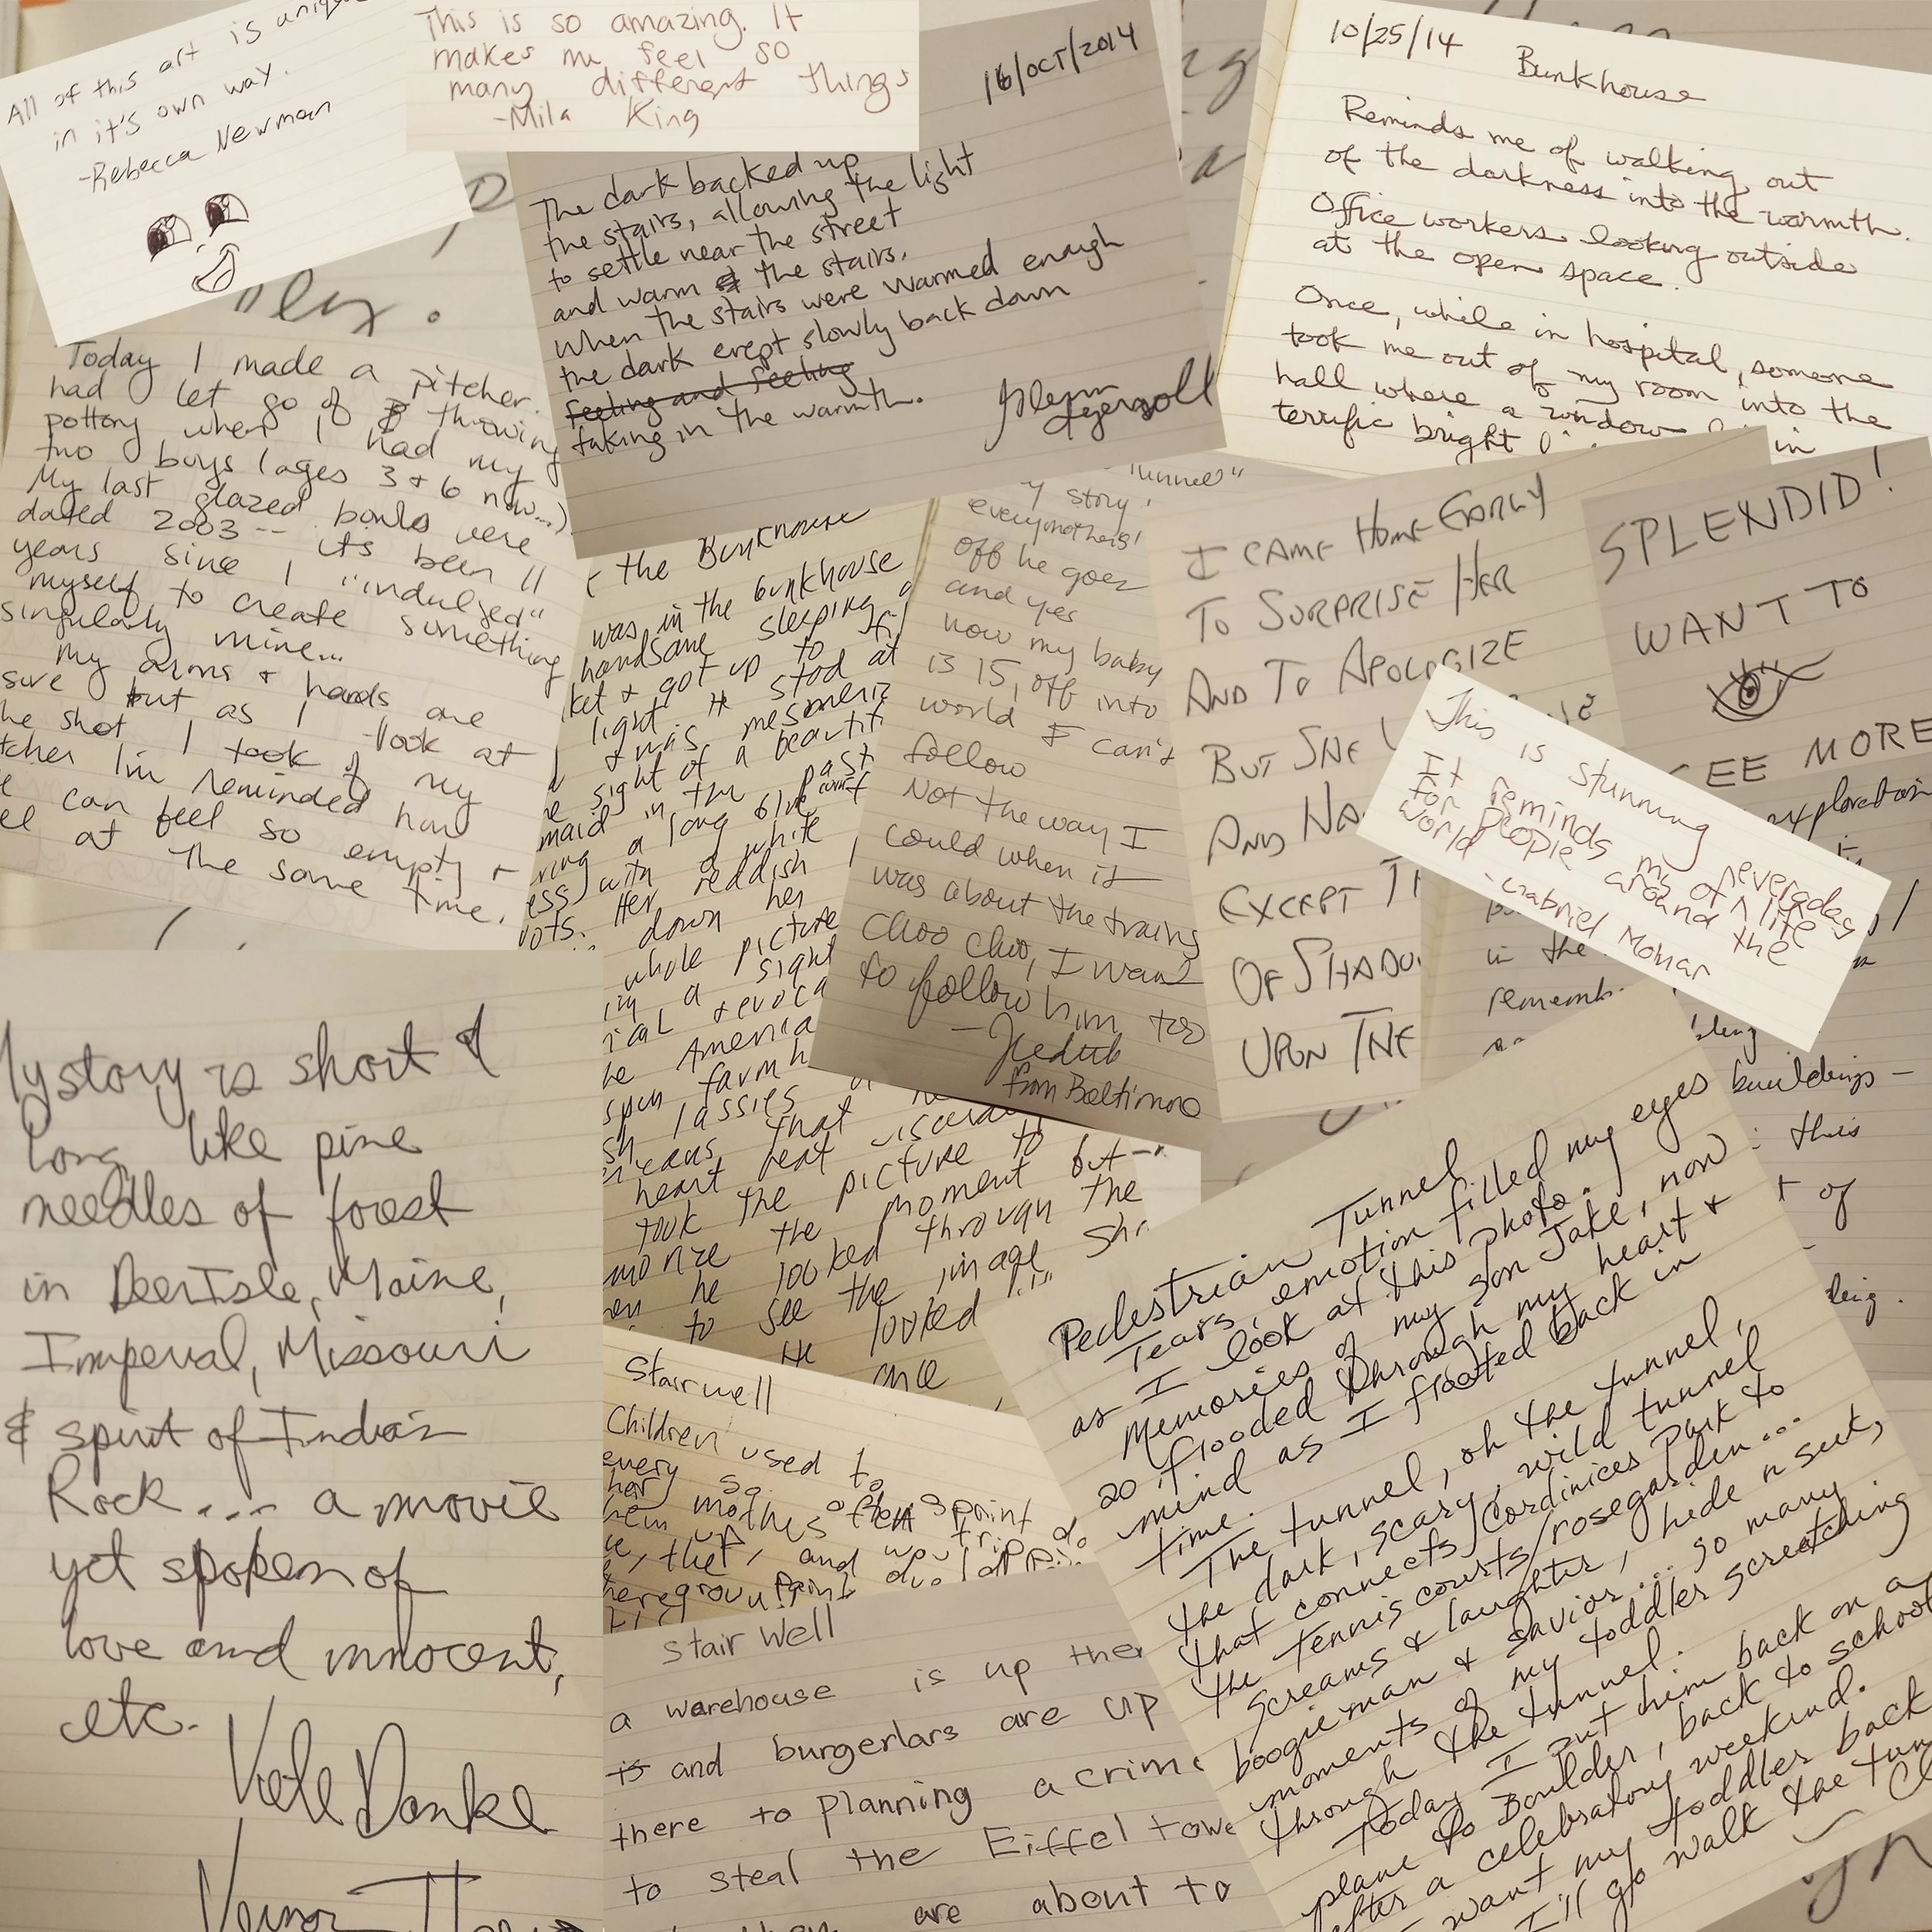 All of this art is unique
in it's own way.
-Rebecca Newman
This is so amazing. It
makes me feel so
many different things
-Mila King
16/OCT/2014
The dark backed up
the stairs, allowing the light
to settle near the street
and warm the stairs.
When the stairs were warmed enough
the dark crept slowly back down
feeling and feeling
taking in the warmth.
10/25/14 Bunkhouse
Reminds me of walking out
of the darkness into the warmth.
Office workers looking outside
at the open space.
Once, while in hospital, someone
took me out of my room into the
hall where a window in
terrific bright
Today I made a pitcher.
had let go of throwing
pottory when I had my
two boys (ages 3 + 6 now...)
My last glazed bowls were
dated 2003-- its been 11
years since I "indulged"
myself to create something
singularly mine...
My arms + hands are
sure but as I look at
the shot I took of my
tcher I'm reminded how
can feel so empty +
at the same time.
the Bunkhouse
was in the bunkhouse
handsome sleeping
ket + got up to
light. H stod at
+ was mesmeriz
sight of a beautif
maid in the past
ring a long blue
ess) with a white
ots. Her reddish
down her
whole picture
in a sight
ical + evoca
be America
spun farmh
sh lassies
ricans that
heart beat
took the picture to
the moment but
he looked through the
to see the image sh
He looked
one
Tunnel"
y story!
everymothers!
off he goes
and yes
now my baby
is 15, off into
world I can't
follow
Not the way I
could when it
was about the trains
Choo choo, I want
to follow him too
from Baltimore
I CAME HOME EARLY
TO SURPRISE HER
AND TO APOLOGIZE
BUT SHE
AND
EXCEPT
OF SHADO
UPON THE
SPLENDID!
WANT TO
SEE MORE
exploration
This is stunning
It reminds me of everyday life
for people around the
world
-Gabriel Momar
in the
rememb
buildings -
this
of
My story is short &
long like pine
needles of forest
in Deer Isle, Maine,
Imperial, Missouri
& spirit of Indian
Rock.... a movie
yet spoken of
love and innocent,
etc.
Viele Danke
Stairwell
Children used to
every so often sprint
mothes
hem up, and wou
Stair Well
a warehouse is up ther
is and burgerlars are up
there to planning a crime
to steal the Eiffel towe
are about to
Pedestrian Tunnel
Tears, emotion filled my eyes
as I look at this photo.
Memories of my son Jake, now
20 flooded through my heart +
mind as I floated back in
time.
The tunnel, oh the tunnel,
the dark, scary, wild tunnel
that connects Cordinices Park to
the tennis courts/rosegarden...
screams & laughter, hide n seek,
boogieman & savior... so many
moments of my toddler screatching
through the tunnel.
Today I put him back on a
plane to Boulder, back to school
after a celebratory weekend.
I want my toddler back
I'll go walk the tun